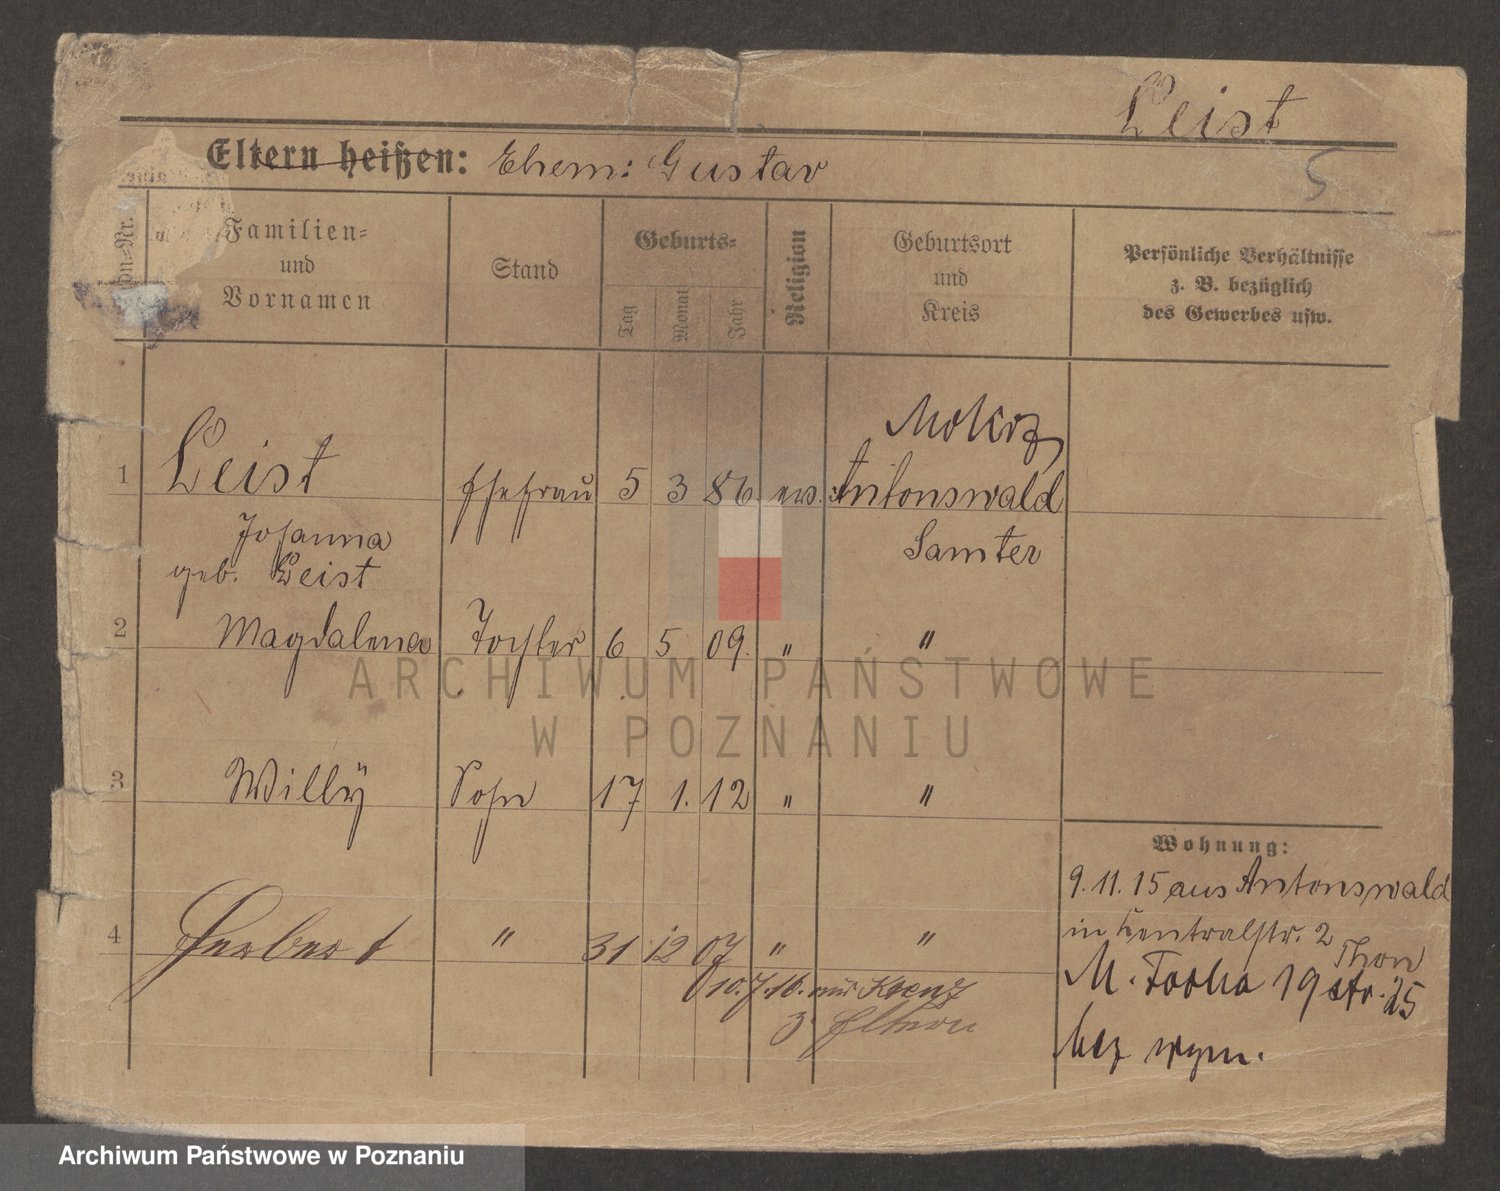 Leist
5
Eltern heißen: Ehem: Gustav
Familien-
und
Vornamen
Stand
Geburts-
Tag Monat Jahr
Religion
Geburtsort
und
Kreis
Persönliche Verhältnisse
z. B. bezüglich
des Gewerbes usw.
Mokrz
1 Leist Ehefrau 5 3 86. ev. Antonswald
Johanna Samter
geb. Leist
2 Magdalena Tochter 6 5 09. " "
3 Willÿ Sohn 17 1. 12 " "
4 Herbert " 31 12 07 " "
10. 7. 16. nur Kreuz
z. Eltern
Wohnung:
9. 11. 15 aus Antonswald
in Zentralstr. 2
Thor
M. Focha 19 str. 25
bez wym.
ARCHIWUM PAŃSTWOWE
W POZNANIU
Archiwum Państwowe w Poznaniu